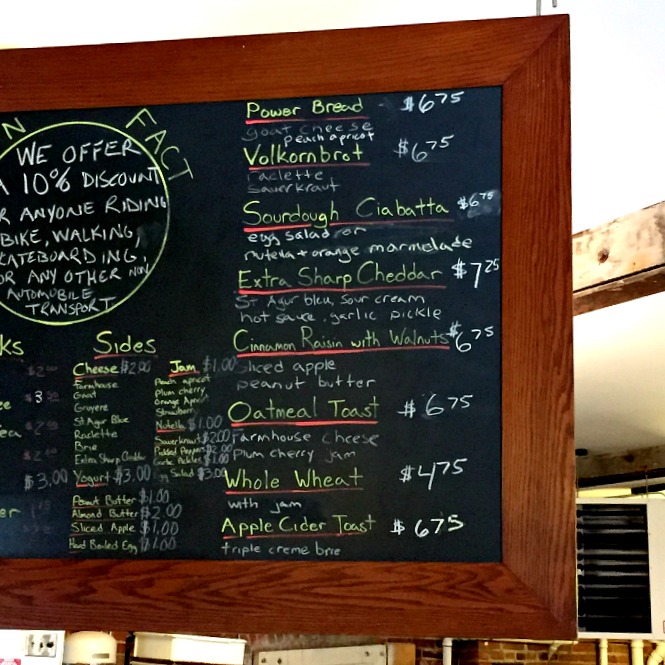 FACT
WE OFFER
A 10% DISCOUNT
ANYONE RIDING
BIKE, WALKING,
OR ANY OTHER NON
AUTOMOBILE
TRANSPORT
Sides
Cheese $2.00
Farmhouse
Goat
Gruyere
St Agur Blue
Raclette
Brie
Extra Sharp Cheddar
Yogurt $3.00
Peanut Butter $1.00
Almond Butter $2.00
Sliced Apple $1.00
Hard Boiled Egg $1.00
Jam $1.00
Peach apricot
Plum cherry
Orange Apricot
Strawberry
Nutella $1.00
Sauerkraut $2.00
Garlic Pickles $1.00
Salad $3.00
$3.00
Power Bread $6.75
goat cheese
peach apricot
Volkornbrot $6.75
raclette
sauerkraut
Sourdough Ciabatta $6.75
egg salad or
nutella + orange marmelade
Extra Sharp Cheddar $7.25
St Agur bleu, sour cream
hot sauce, garlic pickle
Cinnamon Raisin with Walnuts $6.75
sliced apple
peanut butter
Oatmeal Toast $6.75
Farmhouse cheese
Plum cherry jam
Whole Wheat $4.75
with jam
Apple Cider Toast $6.75
triple creme brie